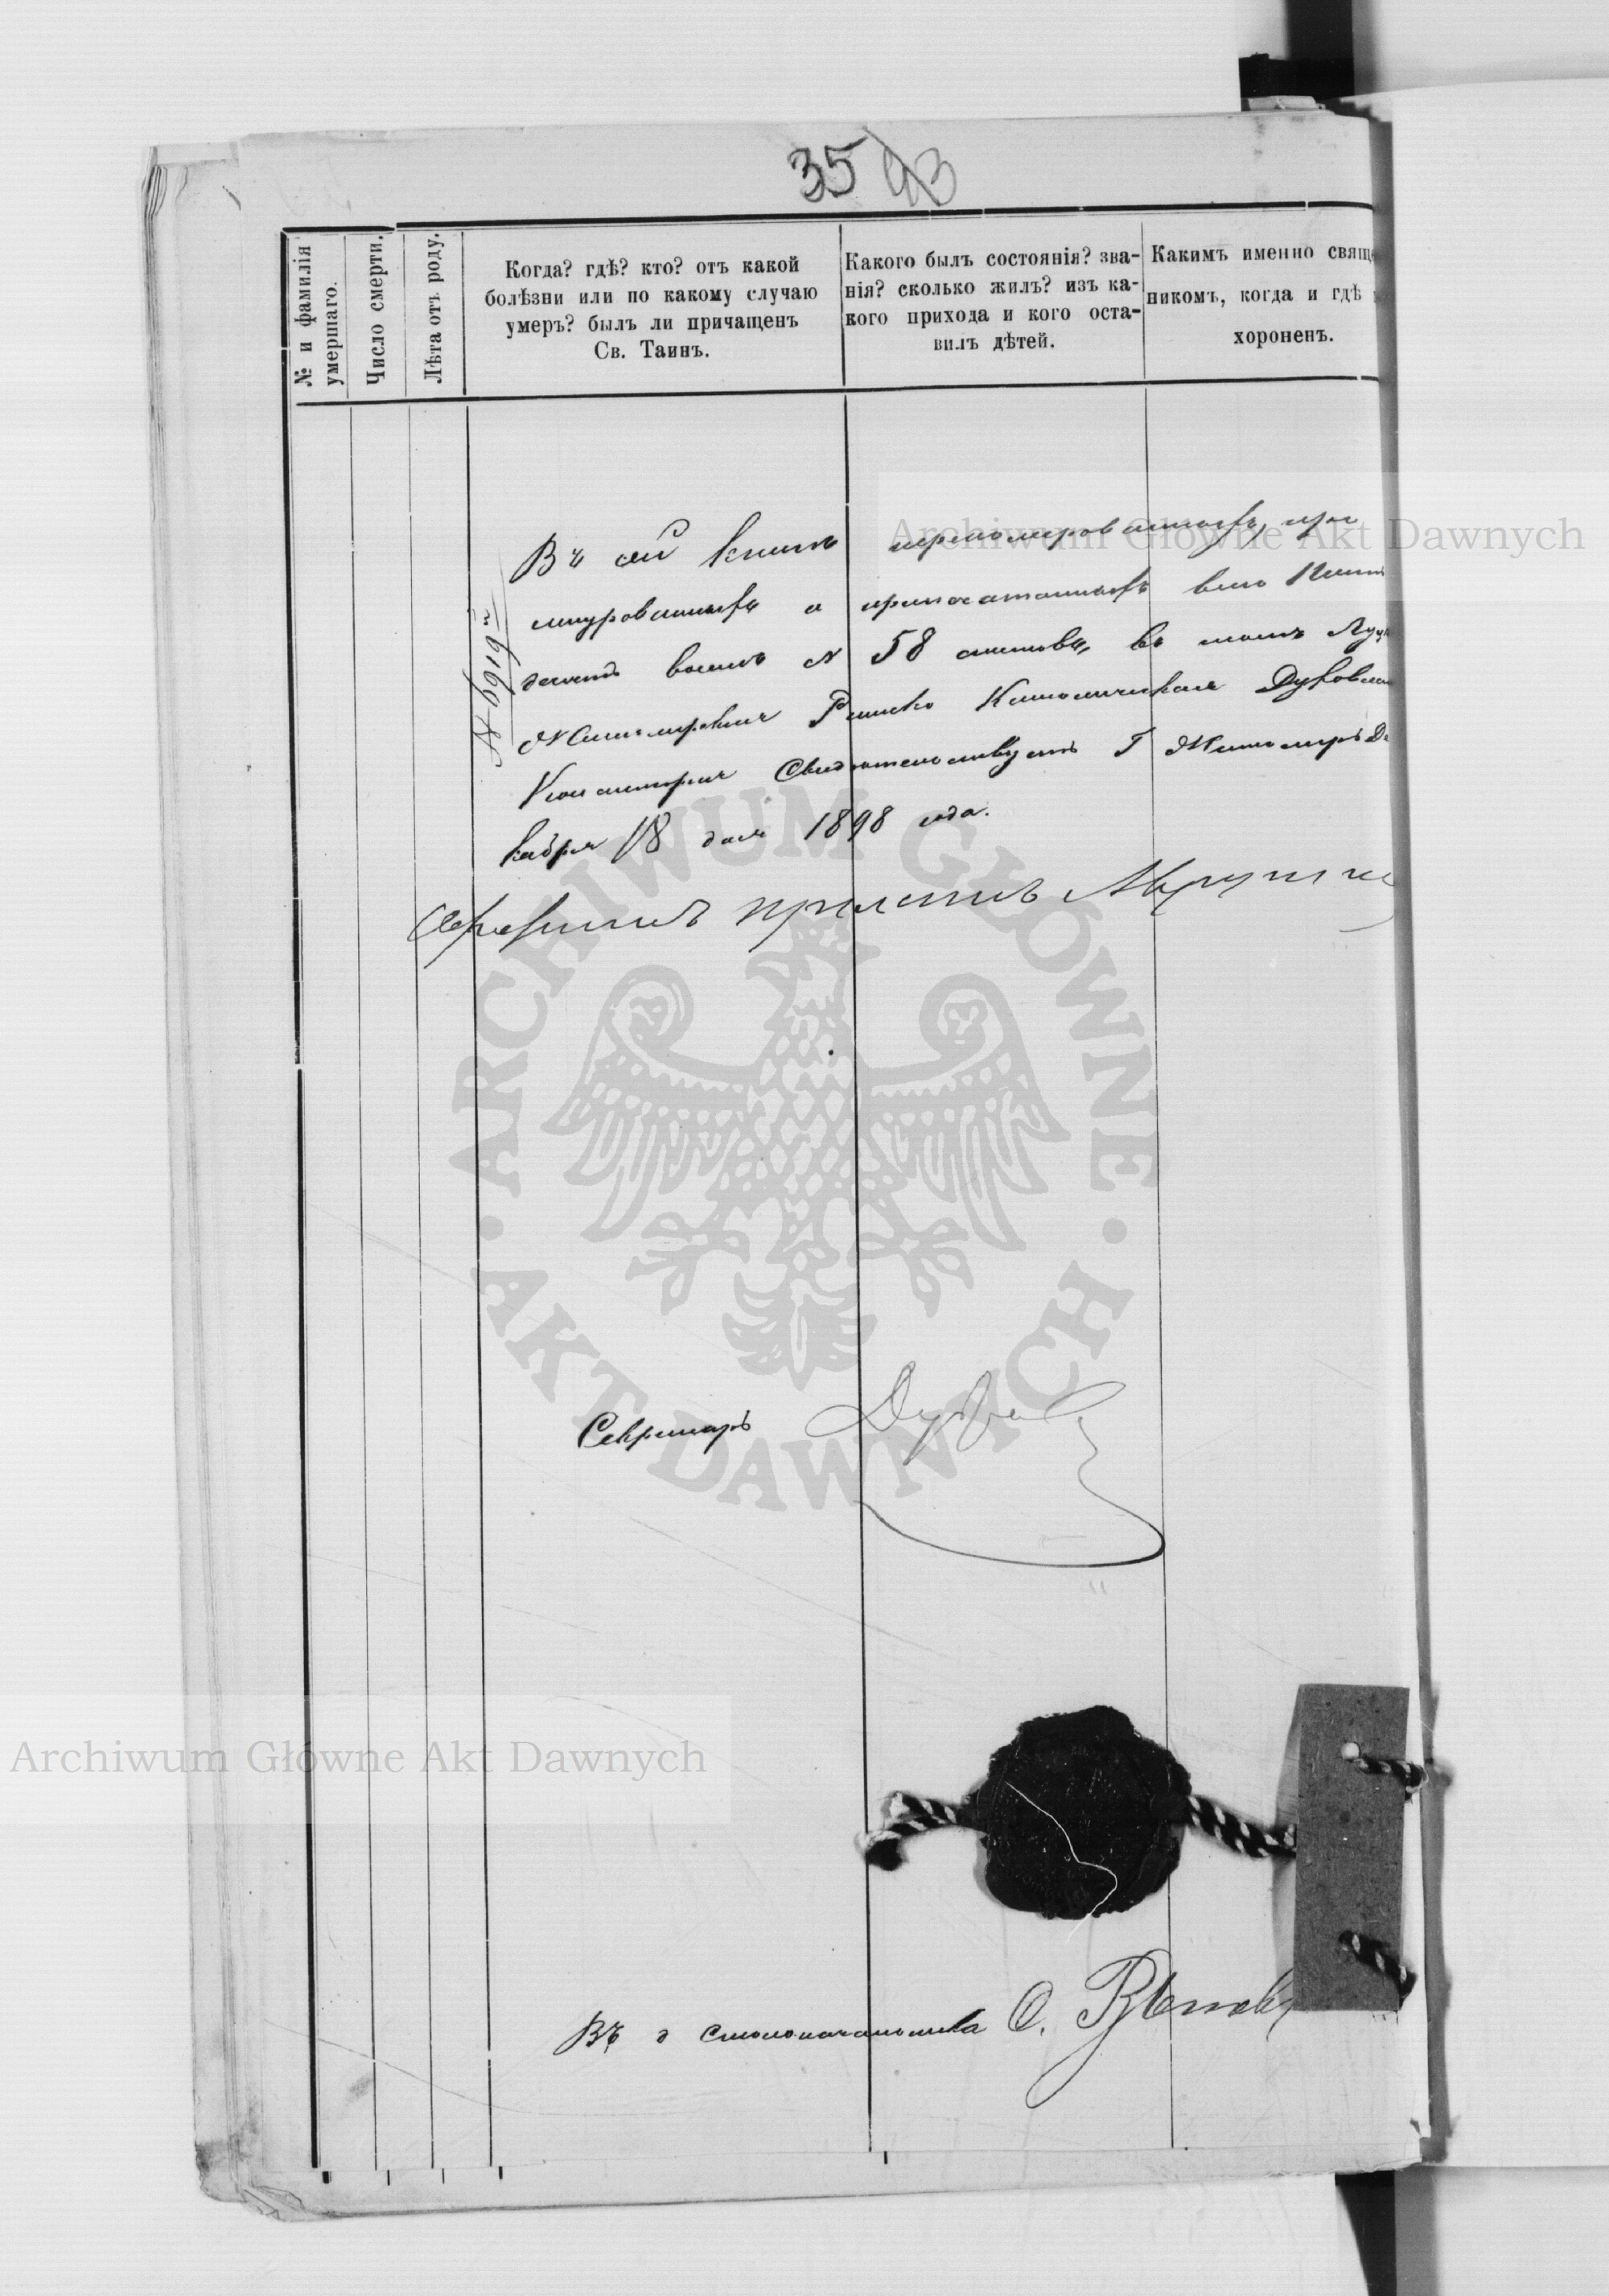 35 93
№ и фамилія
умершаго.
Число смерти.
Лѣта отъ роду.
Когда? гдѣ? кто? отъ какой
болѣзни или по какому случаю
умеръ? былъ ли причащенъ
Св. Таинъ.
Какого былъ состоянія? зва-
нія? сколько жилъ? изъ ка-
кого прихода и кого оста-
вилъ дѣтей.
Какимъ именно свяще
никомъ, когда и гдѣ
хороненъ.
Archiwum Główne Akt Dawnych
Въ сей книгѣ перенумерованныхъ, про
шнурованныхъ и припечатанныхъ всего Пять
десятъ восемь N 58 листовъ, въ томъ Луцк
Житомірская Римско Католическая Духовная
Консисторія Свидѣтельствуетъ Г Житоміръ Де
кабря 18 дня 1898 года.
N 6919
ARCHIWUM GŁÓWNE
AKT DAWNYCH
Секретарь
Archiwum Główne Akt Dawnych
Въ д Столоначальника О.